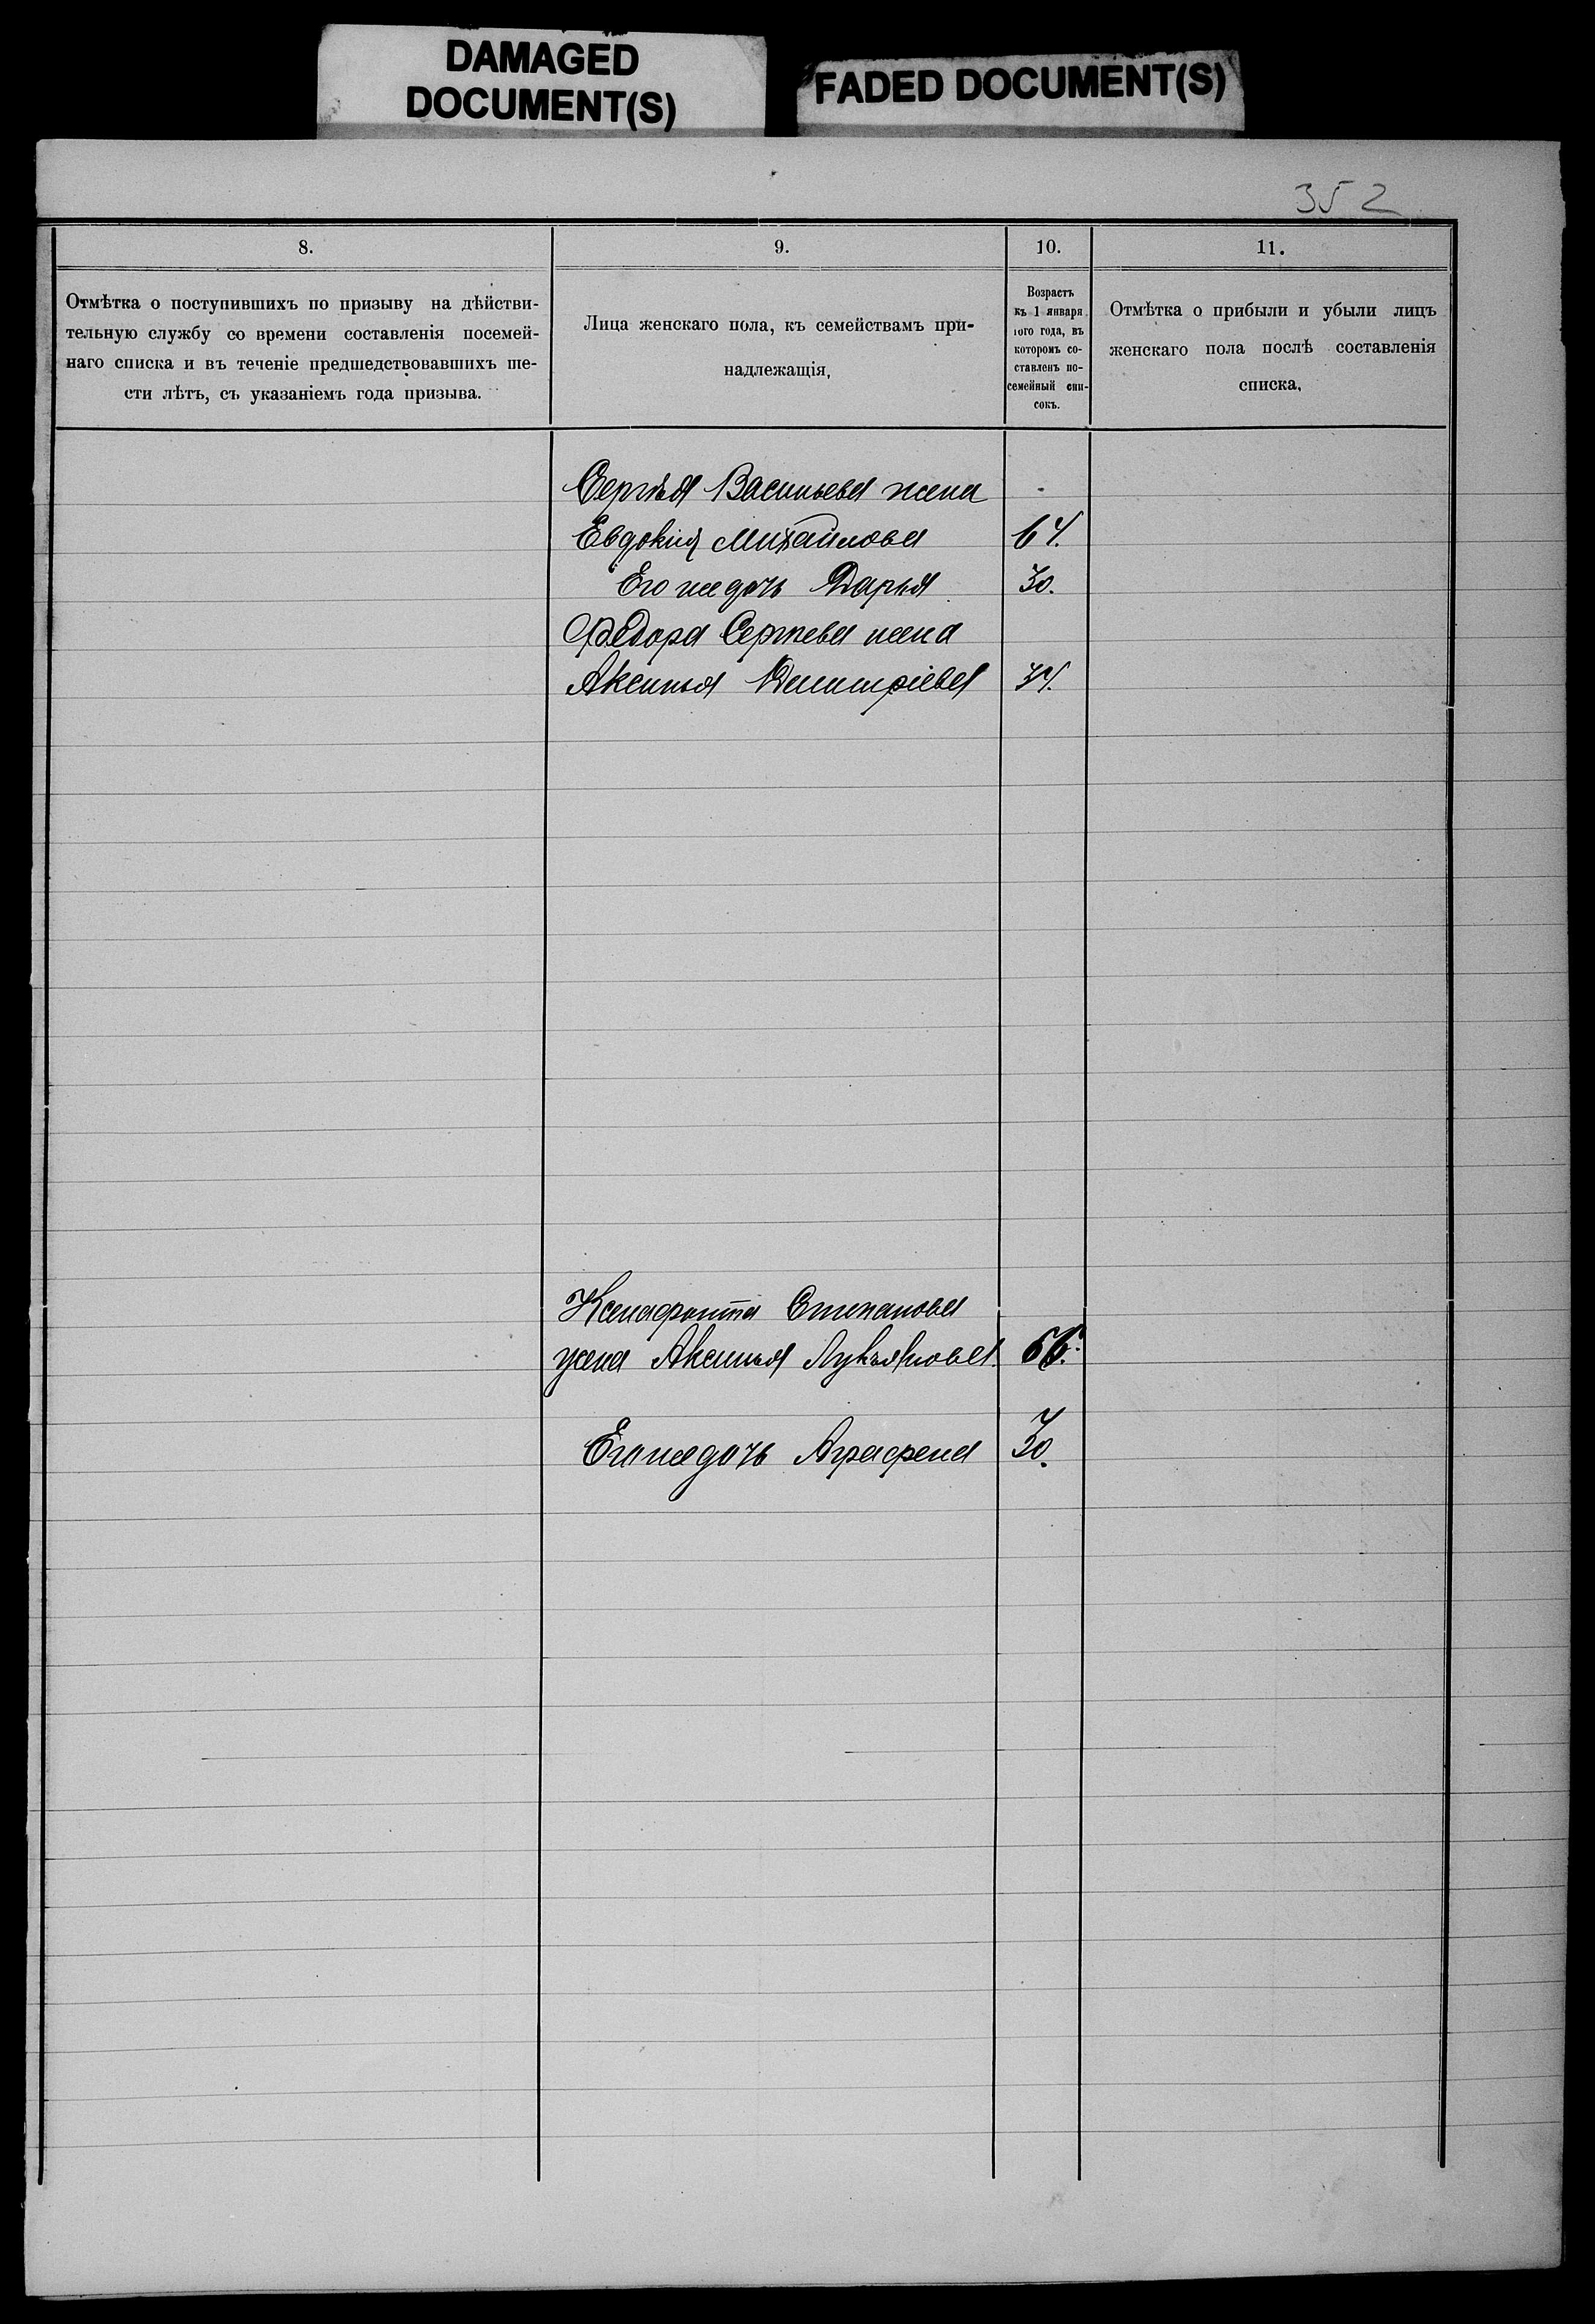 DAMAGED
DOCUMENT(S)
FADED DOCUMENT(S)
352
8.
9.
10.
11.
Отмѣтка о поступившихъ по призыву на дѣйстви-
тельную службу со времени составленія посемей-
наго списка и въ теченіе предшедствовавшихъ ше-
сти лѣтъ, съ указаніемъ года призыва.
Лица женскаго пола, къ семействамъ при-
надлежащія,
Возрастъ
къ 1 января
того года, въ
которомъ со-
ставленъ по-
семейный спи-
сокъ.
Отмѣтка о прибыли и убыли лицъ
женскаго пола послѣ составленія
списка.
Сергѣя Васильева жена
Евдокия Михайлова 64.
Его же дочь Дарья 30.
Ѳедора Сергѣева жена
Аксинья Дмитріева 34.
Ксенафонта Степанова
жена Аксинья Лукьянова
Его же дочь Аграфена 30.